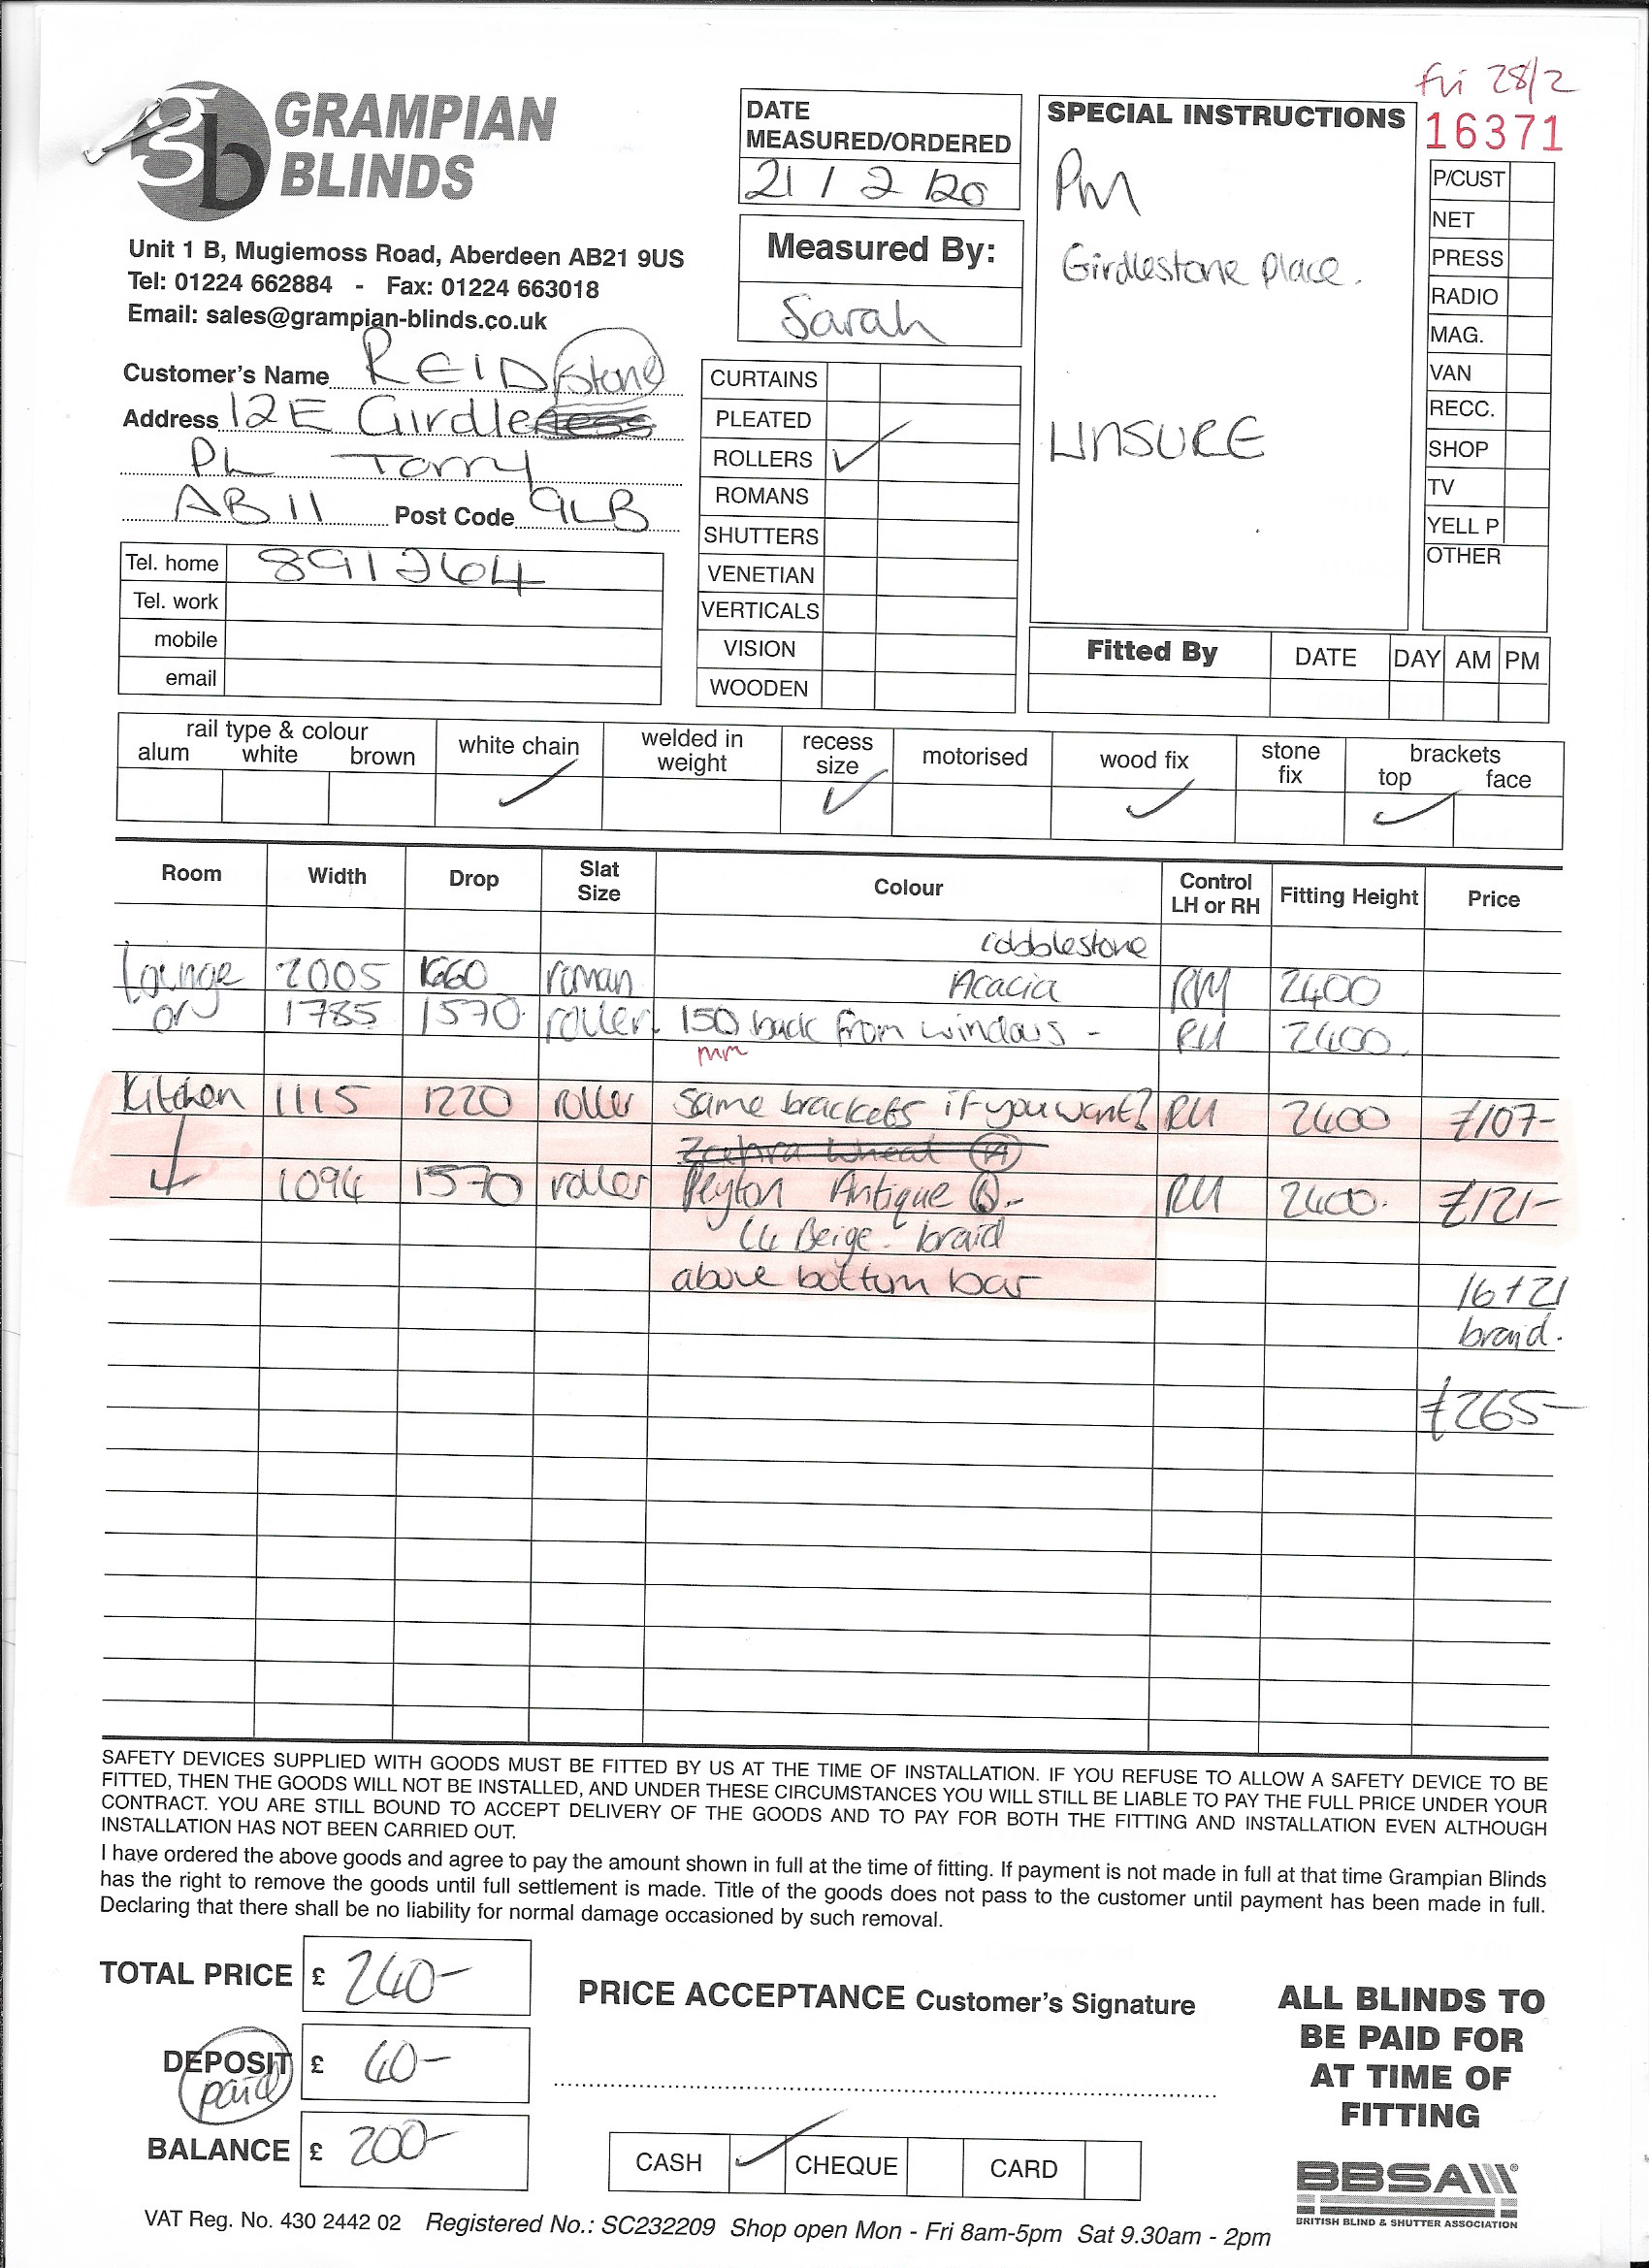 fri 28/2
16371
gb GRAMPIAN
BLINDS
Unit 1 B, Mugiemoss Road, Aberdeen AB21 9US
Tel: 01224 662884 - Fax: 01224 663018
Email: sales@grampian-blinds.co.uk
DATE
MEASURED/ORDERED
21 / 2 /20
Measured By:
Sarah
SPECIAL INSTRUCTIONS
PM
Girdlestone Place.
UNSURE
P/CUST
NET
PRESS
RADIO
MAG.
VAN
RECC.
SHOP
TV
YELL P
OTHER
Customer's Name REID
stone
Address 12E Girdleness
PL Torry
AB11 Post Code 9LB
Tel. home 891264
Tel. work
mobile
email
CURTAINS
PLEATED
ROLLERS ✓
ROMANS
SHUTTERS
VENETIAN
VERTICALS
VISION
WOODEN
Fitted By DATE DAY AM PM
rail type & colour
alum white brown
white chain ✓
welded in
weight
recess
size ✓
motorised
wood fix ✓
stone
fix
brackets
top ✓ face
Room Width Drop Slat Size Colour Control LH or RH Fitting Height Price
cobblestone
Lounge 2005 1660 roman Acacia RH 2400
or 1785 1570 roller. 150 back from windows - RH 2400.
mm
Kitchen 1115 1220 roller same brackets if you want? RH 2400 £107-
Zephra Wheat (A)
↓ 1094 1570 roller Peyton Antique (B).- RH 2400. £121-
L4 Beige. braid
above bottom bar
16+21
braid.
£265-
SAFETY DEVICES SUPPLIED WITH GOODS MUST BE FITTED BY US AT THE TIME OF INSTALLATION. IF YOU REFUSE TO ALLOW A SAFETY DEVICE TO BE
FITTED, THEN THE GOODS WILL NOT BE INSTALLED, AND UNDER THESE CIRCUMSTANCES YOU WILL STILL BE LIABLE TO PAY THE FULL PRICE UNDER YOUR
CONTRACT. YOU ARE STILL BOUND TO ACCEPT DELIVERY OF THE GOODS AND TO PAY FOR BOTH THE FITTING AND INSTALLATION EVEN ALTHOUGH
INSTALLATION HAS NOT BEEN CARRIED OUT.
I have ordered the above goods and agree to pay the amount shown in full at the time of fitting. If payment is not made in full at that time Grampian Blinds
has the right to remove the goods until full settlement is made. Title of the goods does not pass to the customer until payment has been made in full.
Declaring that there shall be no liability for normal damage occasioned by such removal.
TOTAL PRICE £ 240-
DEPOSIT £ 40-
paid
BALANCE £ 200-
PRICE ACCEPTANCE Customer's Signature
CASH ✓ CHEQUE CARD
ALL BLINDS TO
BE PAID FOR
AT TIME OF
FITTING
BBSA
BRITISH BLIND & SHUTTER ASSOCIATION
VAT Reg. No. 430 2442 02 Registered No.: SC232209 Shop open Mon - Fri 8am-5pm Sat 9.30am - 2pm